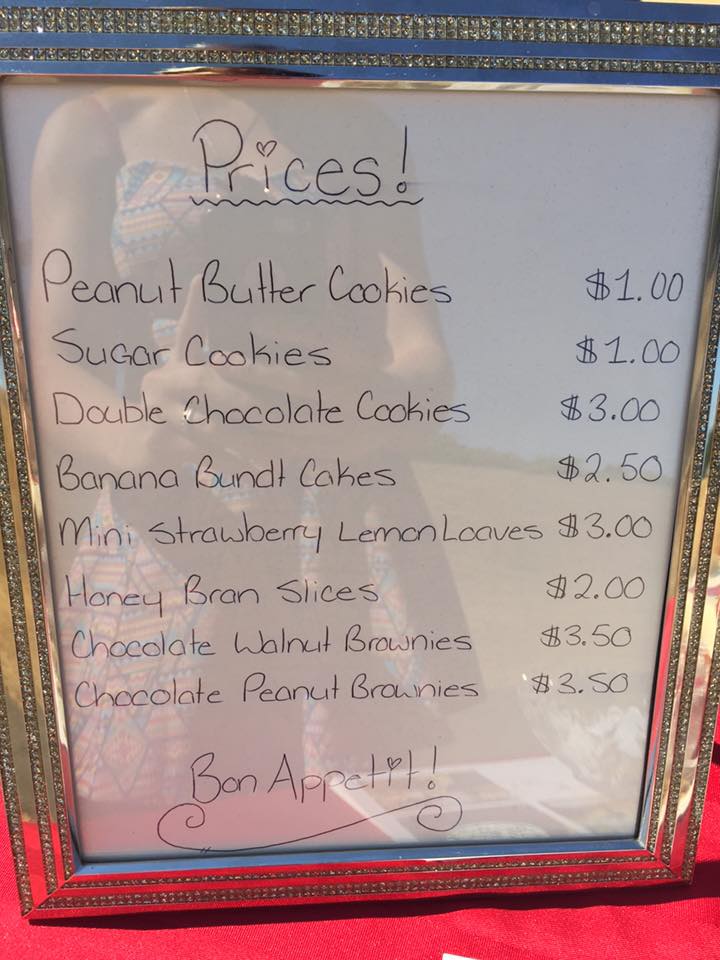 Prices!
Peanut Butter Cookies $1.00
Sugar Cookies $1.00
Double Chocolate Cookies $3.00
Banana Bundt Cakes $2.50
Mini Strawberry Lemon Loaves $3.00
Honey Bran Slices $2.00
Chocolate Walnut Brownies $3.50
Chocolate Peanut Brownies $3.50
Bon Appetit!